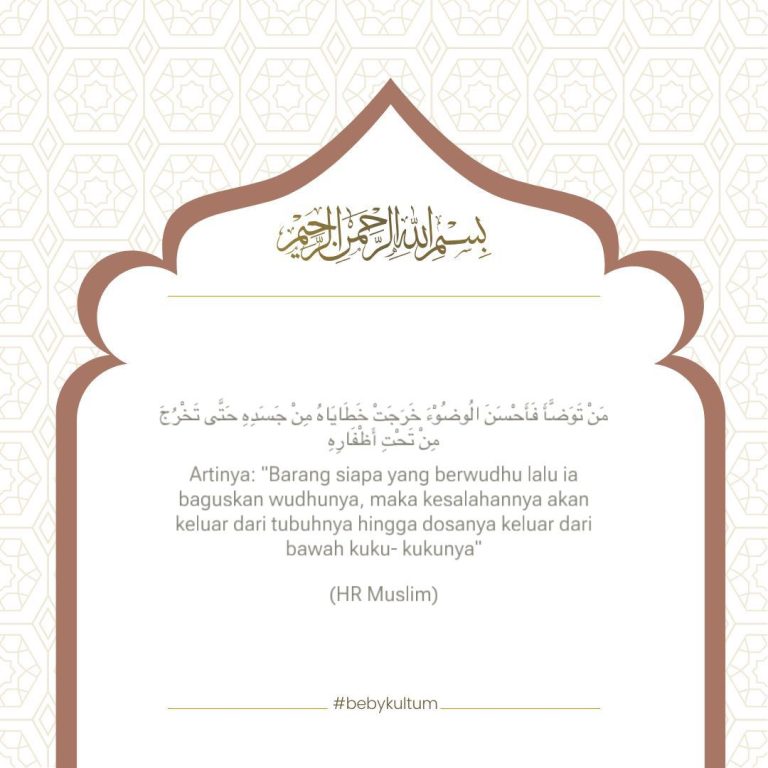 بِسْمِ اللهِ الرَّحْمَنِ الرَّحِيْمِ
مَنْ تَوَضَّأَ فَأَحْسَنَ الُوضُوْءَ خَرَجَتْ خَطَايَاهُ مِنْ جَسَدِهِ حَتَّى تَخْرُجَ
مِنْ تَحْتِ أَظْفَارِهِ
Artinya: "Barang siapa yang berwudhu lalu ia
baguskan wudhunya, maka kesalahannya akan
keluar dari tubuhnya hingga dosanya keluar dari
bawah kuku- kukunya"
(HR Muslim)
#bebykultum